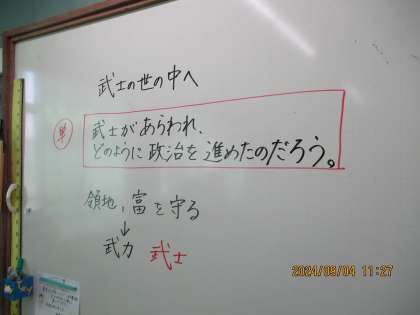 武士の世の中へ
単
武士があらわれ、
どのように政治を進めたのだろう。
領地、富を守る
↓
武力 武士
2024/09/04 11:27